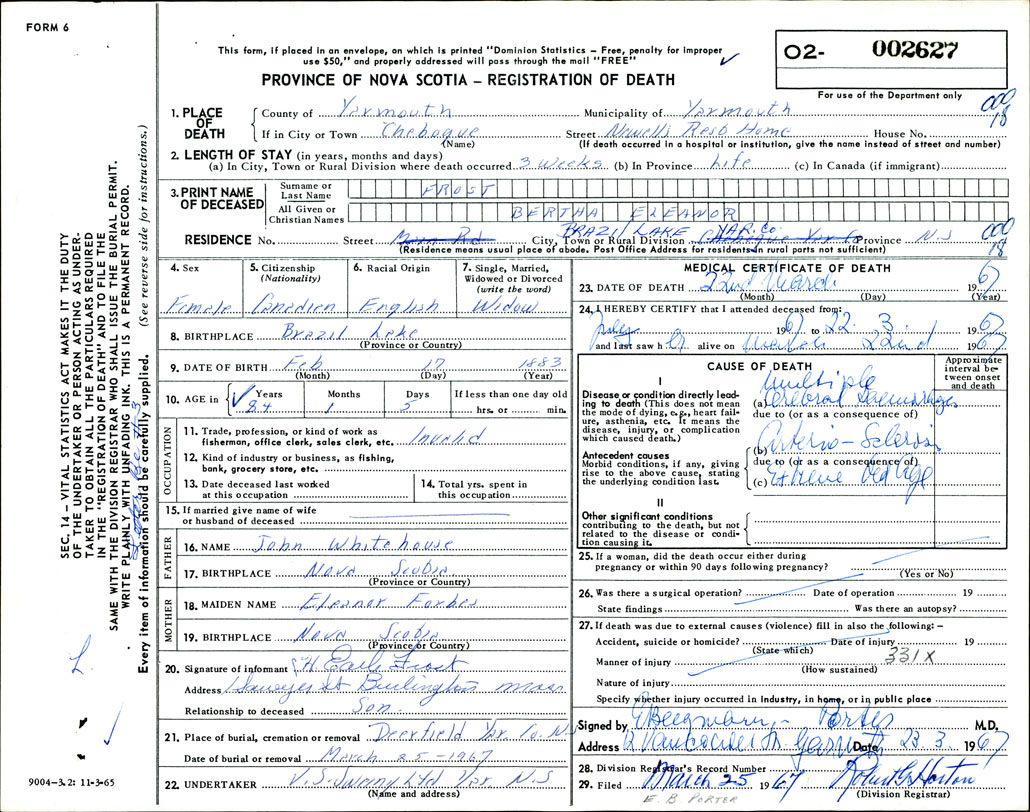 FORM 6
This form, if placed in an envelope, on which is printed "Dominion Statistics – Free, penalty for improper
use $50," and properly addressed will pass through the mail "FREE"
PROVINCE OF NOVA SCOTIA – REGISTRATION OF DEATH
O2- 002627
For use of the Department only
SEC. 14 – VITAL STATISTICS ACT MAKES IT THE DUTY
OF THE UNDERTAKER OR PERSON ACTING AS UNDER-
TAKER TO OBTAIN ALL THE PARTICULARS REQUIRED
IN THE "REGISTRATION OF DEATH" AND TO FILE THE
SAME WITH THE DIVISION REGISTRAR WHO SHALL ISSUE THE BURIAL PERMIT.
WRITE PLAINLY WITH UNFADING INK. THIS IS A PERMANENT RECORD.
Every item of information should be carefully supplied. (See reverse side for instructions.)
1. PLACE OF DEATH County of Yarmouth Municipality of Yarmouth 000
If in City or Town Cheboque Street Newells Rest Home House No. 18
(Name) (If death occurred in a hospital or institution, give the name instead of street and number)
2. LENGTH OF STAY (in years, months and days)
(a) In City, Town or Rural Division where death occurred 3 weeks (b) In Province Life (c) In Canada (if immigrant)
3. PRINT NAME OF DECEASED Surname or Last Name FROST
All Given or Christian Names BERTHA ELEANOR
BRAZIL LAKE YAR. CO. 000
RESIDENCE No. Street City, Town or Rural Division Province N.S 18
(Residence means usual place of abode. Post Office Address for residents in rural parts not sufficient)
4. Sex 5. Citizenship (Nationality) 6. Racial Origin 7. Single, Married, Widowed or Divorced (write the word)
Female Canadian English Widow
8. BIRTHPLACE Brazil Lake
(Province or Country)
9. DATE OF BIRTH Feb 17 1883
(Month) (Day) (Year)
10. AGE in Years Months Days If less than one day old
84 1 5 hrs. or min.
OCCUPATION
11. Trade, profession, or kind of work as
fisherman, office clerk, sales clerk, etc. Invalid
12. Kind of industry or business, as fishing,
bank, grocery store, etc.
13. Date deceased last worked at this occupation 14. Total yrs. spent in this occupation
15. If married give name of wife
or husband of deceased
FATHER
16. NAME John Whitehouse
17. BIRTHPLACE Nova Scotia
(Province or Country)
MOTHER
18. MAIDEN NAME Eleanor Forbes
19. BIRTHPLACE Nova Scotia
(Province or Country)
20. Signature of informant H Earle Frost
Address Sawyer St Burlington Mass
Relationship to deceased Son
21. Place of burial, cremation or removal Deerfield Yar. Co. N.S
Date of burial or removal March 25-1967
22. UNDERTAKER V.S. Sweny Ltd Yar. N.S
(Name and address)
L.
9004-3.2: 11-3-65
MEDICAL CERTIFICATE OF DEATH
23. DATE OF DEATH 22nd March 1967
(Month) (Day) (Year)
24. I HEREBY CERTIFY that I attended deceased from:
1961 to 22. 3. 1967
and last saw her alive on March 22nd 1967
CAUSE OF DEATH
Approximate interval between onset and death
I
Disease or condition directly leading to death (This does not mean the mode of dying, e.g., heart failure, asthenia, etc. It means the disease, injury, or complication which caused death.)
Multiple
(a) Cerebral Haemorrhages
due to (or as a consequence of)
Antecedent causes
Morbid conditions, if any, giving rise to the above cause, stating the underlying condition last.
(b) Arterio-Sclerosis
due to (or as a consequence of)
(c) Extreme Old Age
II
Other significant conditions
contributing to the death, but not related to the disease or condition causing it.
25. If a woman, did the death occur either during
pregnancy or within 90 days following pregnancy?
(Yes or No)
26. Was there a surgical operation? Date of operation 19
State findings Was there an autopsy?
27. If death was due to external causes (violence) fill in also the following: –
Accident, suicide or homicide? Date of injury 19
(State which)
Manner of injury 331X
(How sustained)
Nature of injury
Specify whether injury occurred in Industry, in home, or in public place
Signed by M.D.
Address Vancouver St. Yarmouth Date 23.3. 1967
28. Division Registrar's Record Number
29. Filed March 25 1967 Robert G Horton
(Division Registrar)
E. B. PORTER